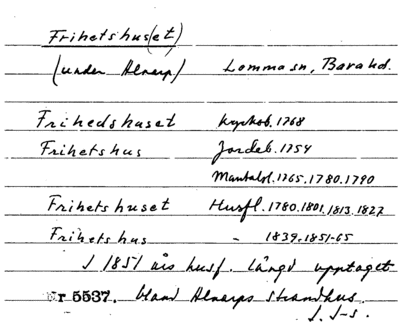 Frihetshus(et)
(under Alnarp) Lomma sn, Bara hd.
Frihedshuset Kyrkob. 1768
Frihetshus Jordeb. 1754
Mantalsl. 1765. 1780. 1790
Frihetshuset Husfl. 1780. 1801. 1813. 1827
Frihetshus - 1839. 1851-65
I 1851 års husf. längd upptaget
nr 5537. bland Alnarps strandhus.
J. S-s.